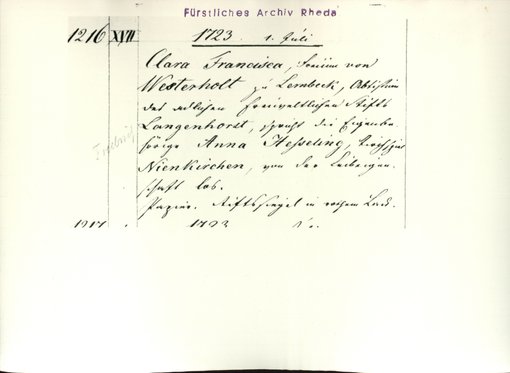 Fürstliches Archiv Rheda
1216 XVII 1723 1. Juli
Clara Francisca, Freiin von
Westerholt zu Lembeck, Abtissin
des adlichen freiweltlichen Stifts
Langenhorst, spricht die Eigenbe
hörige Anna Hesseling, Kirchspiel
Nienkirchen, von der Leibeigen-
schaft los.
Papier. Stiftssiegel in rothem Lack.
1217 1723